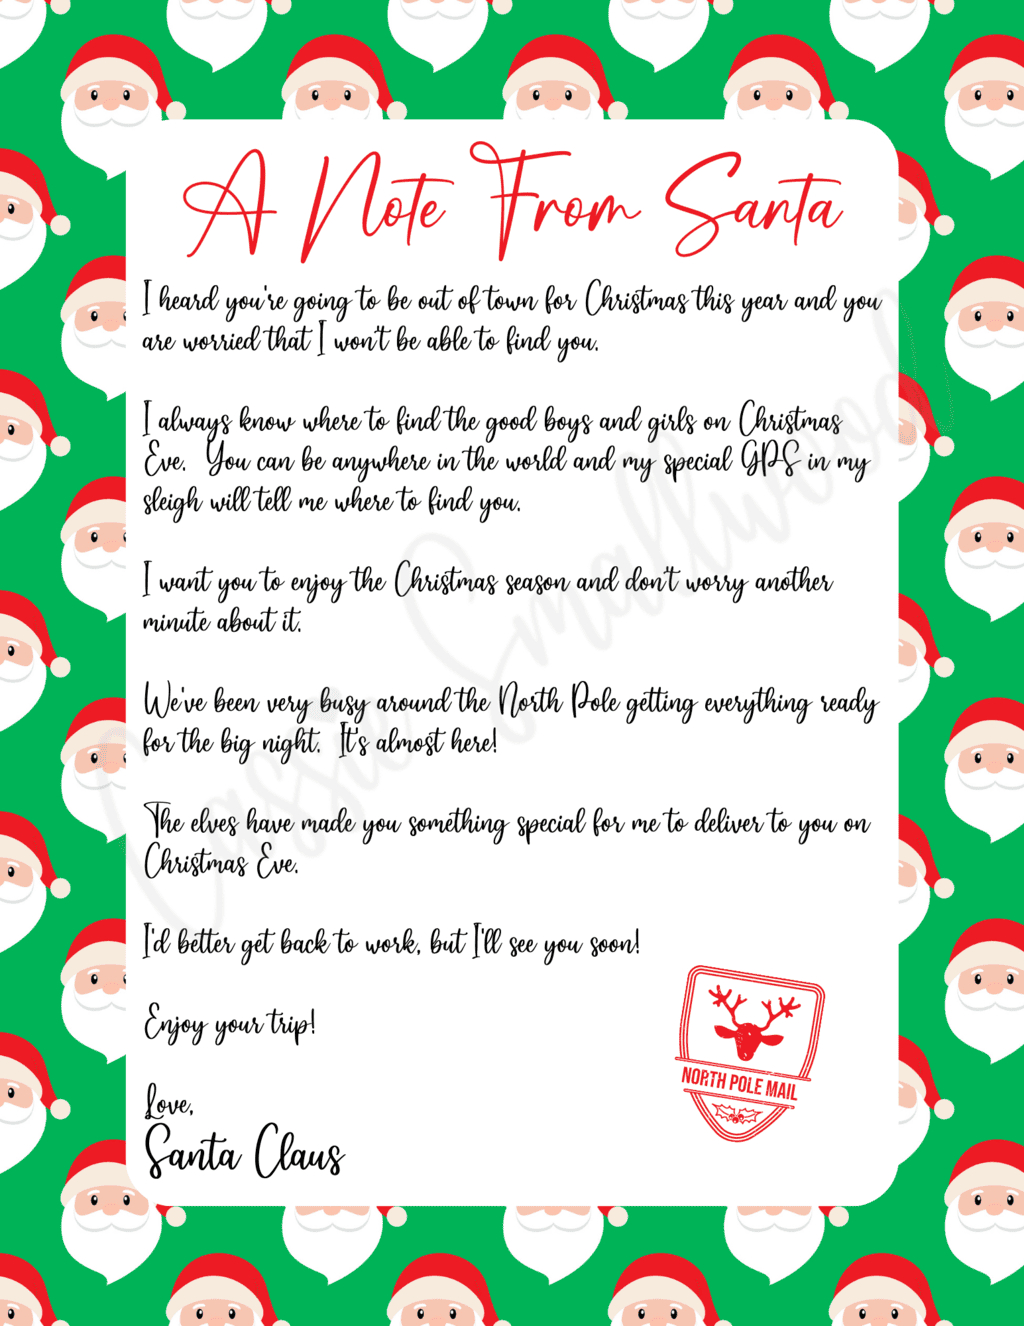 A Note From Santa
I heard you're going to be out of town for Christmas this year and you
are worried that I won't be able to find you.
I always know where to find the good boys and girls on Christmas
Eve.  You can be anywhere in the world and my special GPS in my
sleigh will tell me where to find you.
I want you to enjoy the Christmas season and don't worry another
minute about it.
We've been very busy around the North Pole getting everything ready
for the big night.  It's almost here!
The elves have made you something special for me to deliver to you on
Christmas Eve.
I'd better get back to work, but I'll see you soon!
Enjoy your trip!
Love,
Santa Claus
NORTH POLE MAIL
Cassie Smallwood